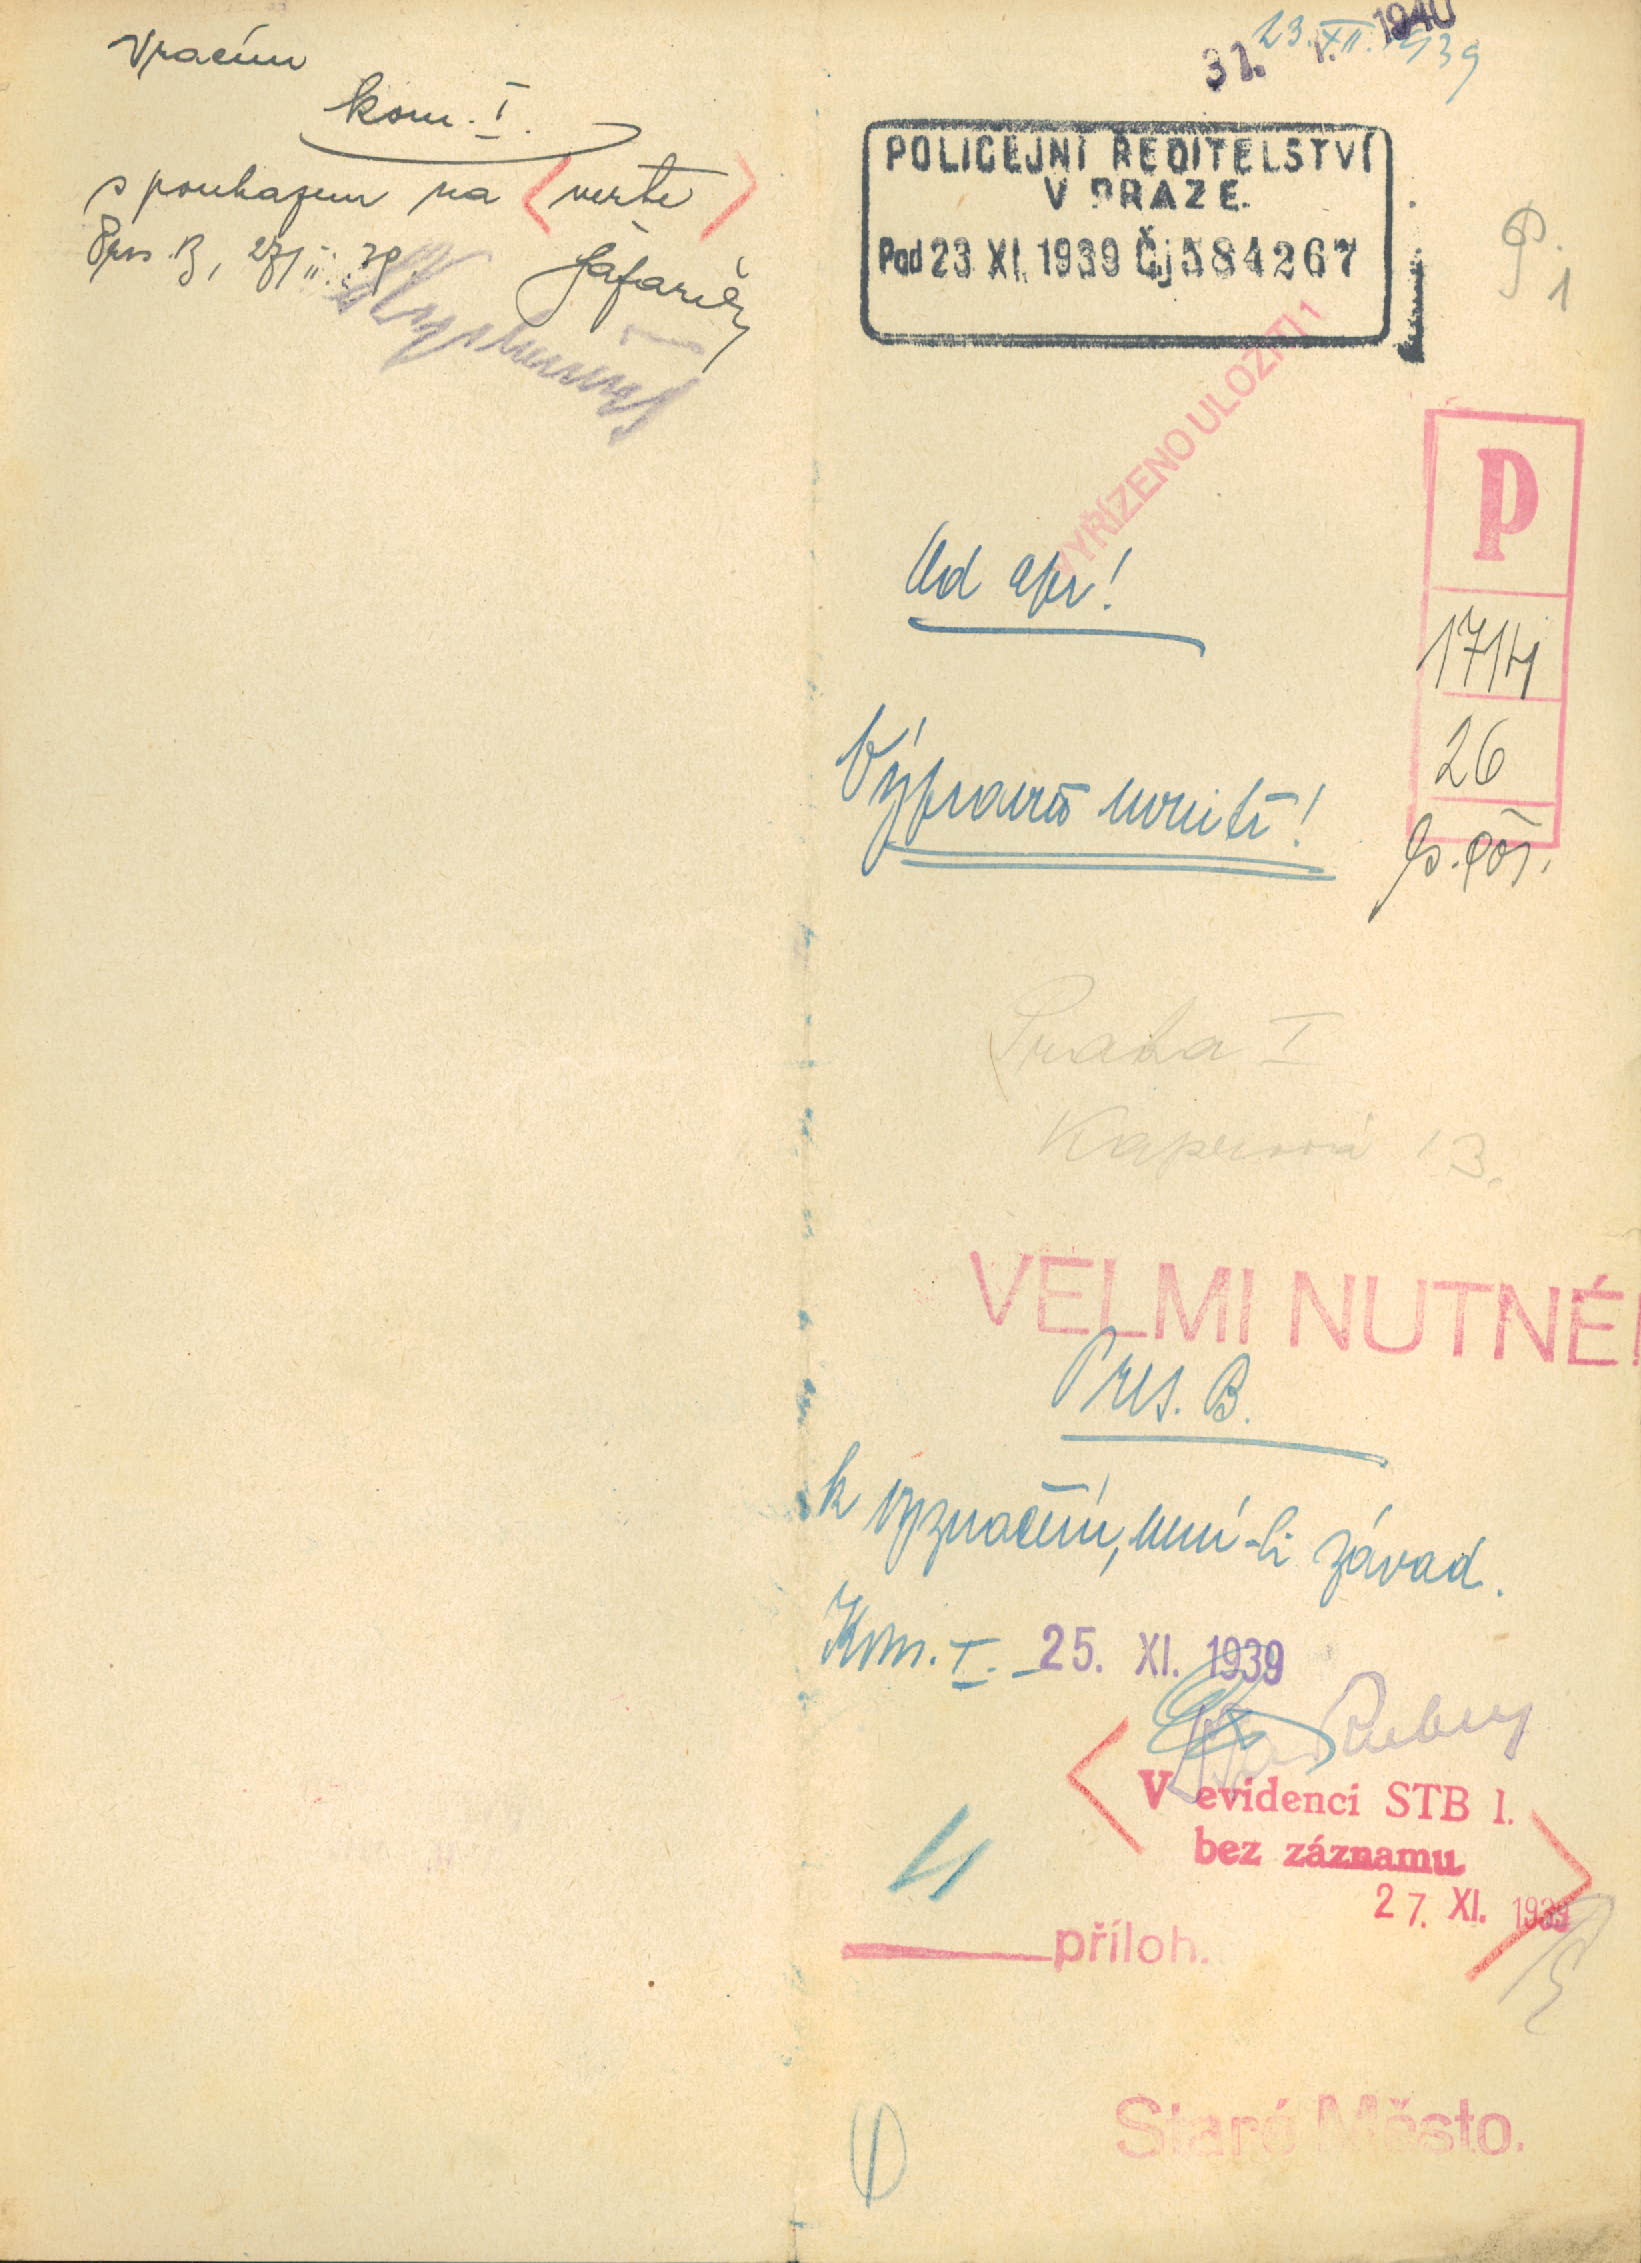 Vracím
kom. I.
s poukazem na verte
Pres. B, 27/11. 39.
31. I. 1940
23. XII. 1939
POLICEJNÍ ŘEDITELSTVÍ
V PRAZE.
Pod 23 XI. 1939 Čj 584267
P. 1
VYŘÍZENO ULOŽITI 1
P
1714
26
Ad apr!
Praha I
Kaprova 13.
VELMI NUTNÉ!
Pres. B.
k vyznačení, není-li závad.
Kom. I. 25. XI. 1939
V evidenci STB 1.
bez záznamu
27. XI. 1939
4
příloh.
Staré Město.